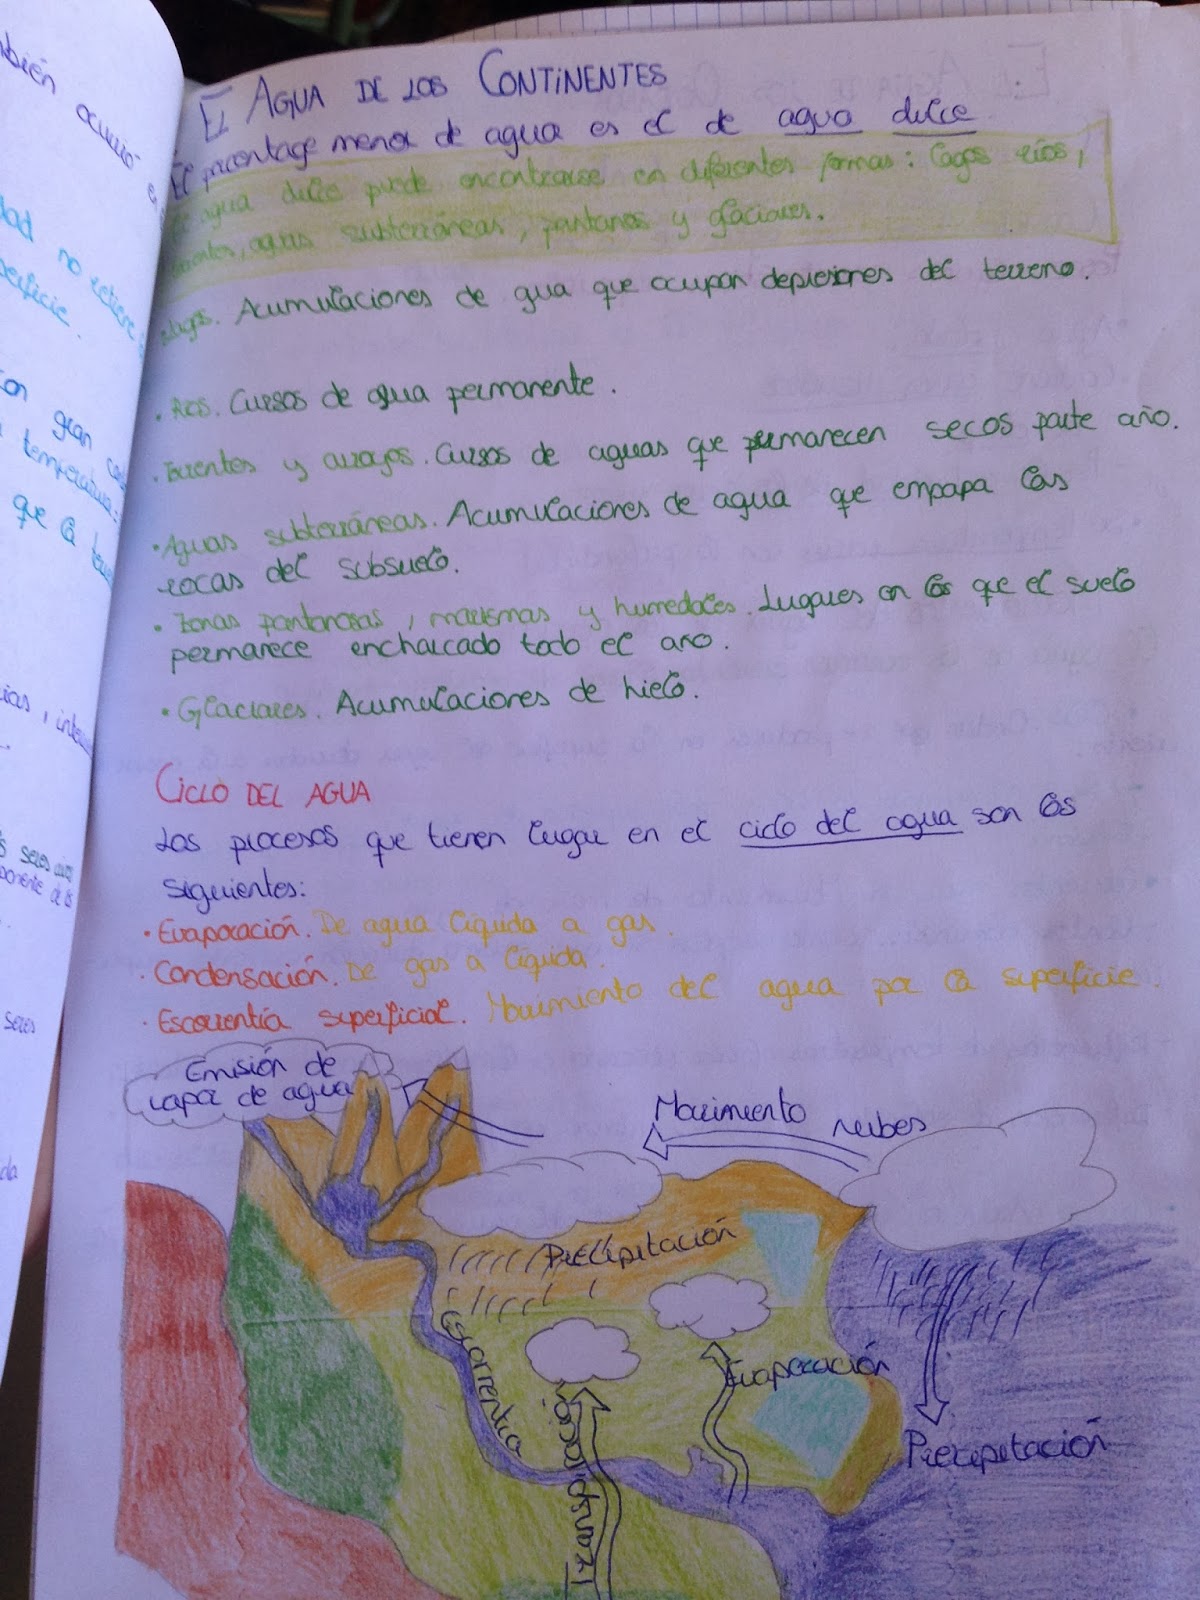 mbién ocurrió
dad no retiene
perficie.
on gran
temperatura:
que la
cias,
s seres
ponente de los
seres
da
El AGUA DE LOS CONTINENTES
El porcentage menor de agua es el de agua dulce
El agua dulce puede encontrarse en diferentes formas: lagos ríos,
torrentes, aguas subterráneas, pantanos y glaciares.
Lags. Acumulaciones de gua que ocupan depresiones del terreno.
· Ríos. Cursos de agua permanente.
· Torrentes y arroyos. Cursos de aguas que permanecen secos parte año.
· Aguas subterráneas. Acumulaciones de agua que empapa las
rocas del subsuelo.
· Zonas pantanosas, marismas y humedales. Lugares en los que el suelo
permanece encharcado todo el año.
· Glaciares. Acumulaciones de hielo.
CICLO DEL AGUA
Los procesos que tienen lugar en el ciclo del agua son los
siguientes:
· Evaporación. De agua líquida a gas.
· Condensación. De gas a líquida.
· Escorrentía superficial. Movimiento del agua por la superficie.
Emisión de
vapor de agua
Movimiento nubes
Precipitación
Escorrentia
Evaporación
Transpiración
Precipitación